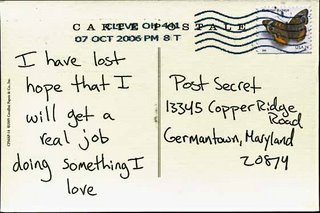 CARTE POSTALE
CLEVE OH 441
07 OCT 2006 PM 8 T
I have lost
hope that I
will get a
real job
doing something I
love
Post Secret
13345 Copper Ridge
Road
Germantown, Maryland
20874